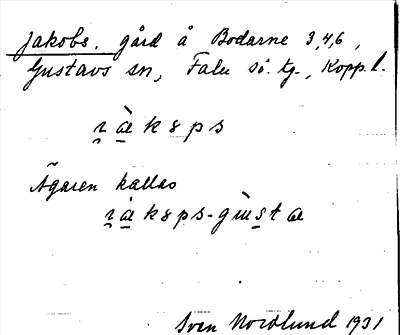 Jakobs. gård å Bodarne 3,4,6,
Gustavs sn, Falu sö. tg., Kopp. l.
Ägaren kallas
Sven Nordlund 1931